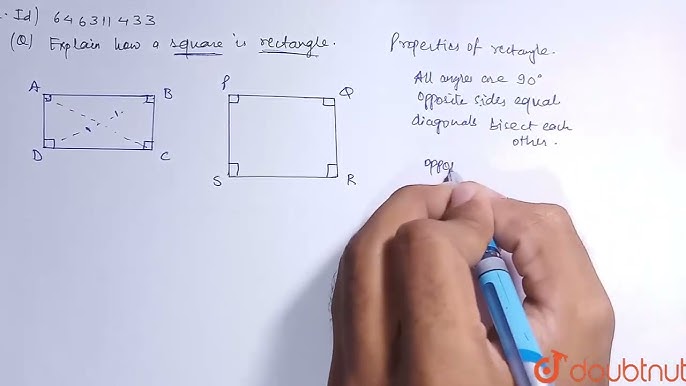 Id) 646311433
(Q) Explain how a square is rectangle.
Properties of rectangle.
All angles are 90°
Opposite sides equal
diagonals bisect each
other.
oppo
A
B
D
C
P
Q
S
R
doubtnut